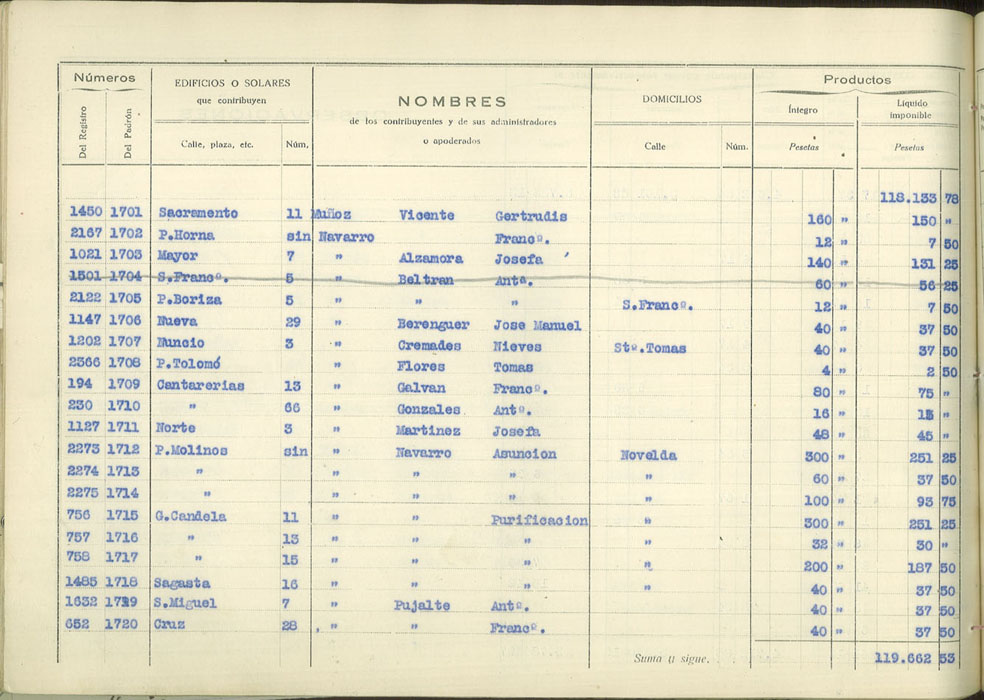 Números EDIFICIOS O SOLARES que contribuyen NOMBRES de los contribuyentes y de sus administradores o apoderados DOMICILIOS Productos
Del Registro Del Padrón Calle, plaza, etc. Núm. Calle Núm. Íntegro Líquido imponible
Pesetas Pesetas
118.133 78
1450 1701 Sacramento 11 Muñoz Vicente Gertrudis 160 " 150 "
2167 1702 P.Horna sin Navarro Francº. 12 " 7 50
1021 1703 Mayor 7 " Alzamora Josefa 140 " 131 25
1501 1704 S.Francº. 5 " Beltran Antº. 60 " 56 25
2122 1705 P.Boriza 5 " " " S.Francº. 12 " 7 50
1147 1706 Nueva 29 " Berenguer Jose Manuel 40 " 37 50
1202 1707 Nuncio 3 " Cremades Nieves Stº.Tomas 40 " 37 50
2366 1708 P.Tolomó " Flores Tomas 4 " 2 50
194 1709 Cantarerias 13 " Galvan Francº. 80 " 75 "
230 1710 " 66 " Gonzales Antº. 16 " 15 "
1127 1711 Norte 3 " Martinez Josefa 48 " 45 "
2273 1712 P.Molinos sin " Navarro Asuncion Novelda 300 " 251 25
2274 1713 " " " " " 60 " 37 50
2275 1714 " " " " " 100 " 93 75
756 1715 G.Candela 11 " " Purificacion " 300 " 251 25
757 1716 " 13 " " " " 32 " 30 "
758 1717 " 15 " " " " 200 " 187 50
1485 1718 Sagasta 16 " " " " 40 " 37 50
1632 1719 S.Miguel 7 " Pujalte Antº. 40 " 37 50
652 1720 Cruz 28 " " Francº. 40 " 37 50
Suma u sigue. 119.662 53